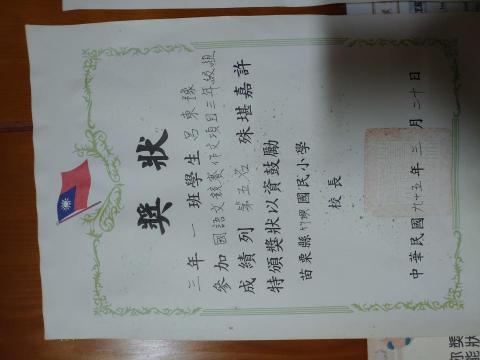 獎狀
三年一班學生呂東臻
參加國語文競賽作文項目三年級組
成績列第五名 殊堪嘉許
特頒獎狀以資鼓勵
苗栗縣竹興國民小學
校長
中華民國九十五年三月二十日